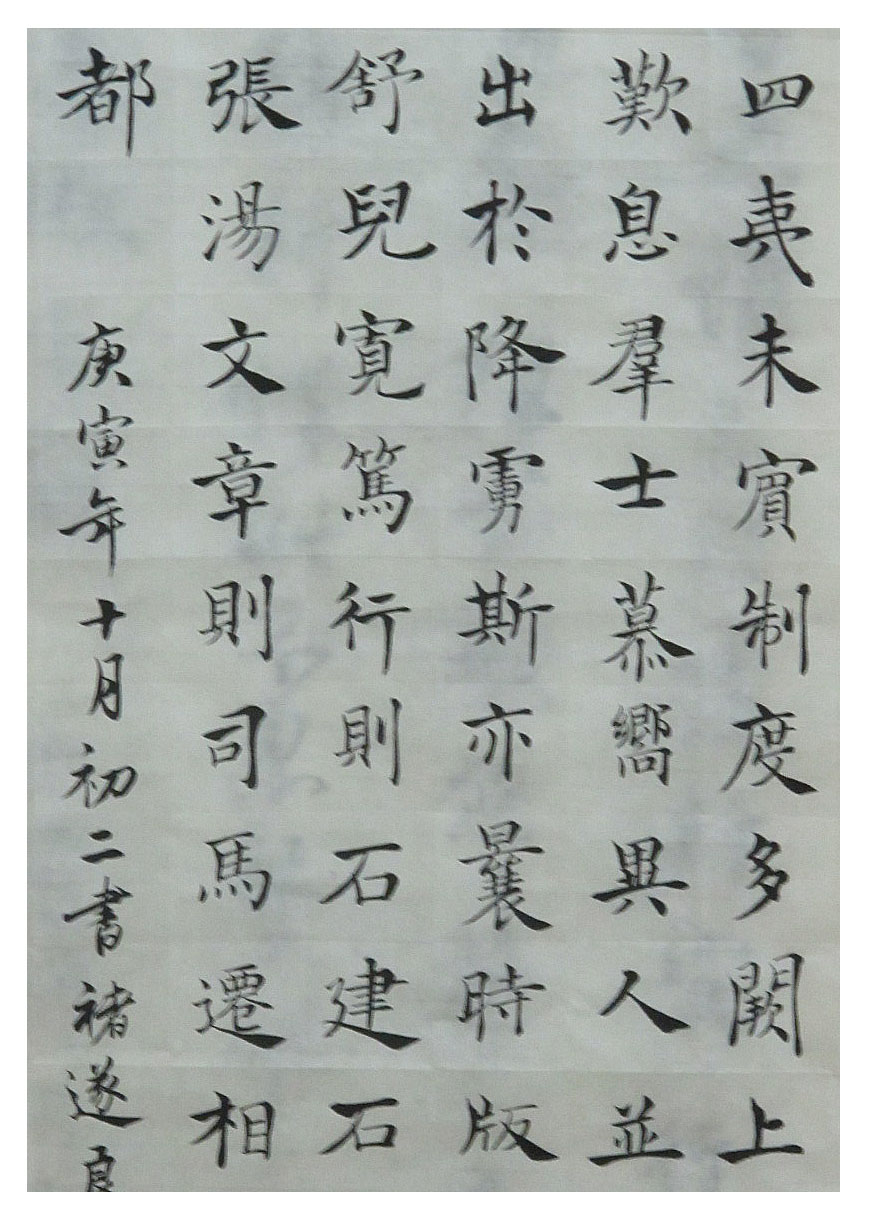 四夷未賓制度多闕上
歎息羣士慕嚮異人並
出於降虜斯亦曩時版
舒兒寬篤行則石建石
張湯文章則司馬遷相
都
庚寅年十月初二書褚遂良